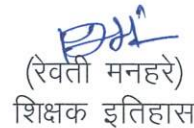 (रेवती मनहरे)
शिक्षक इतिहास